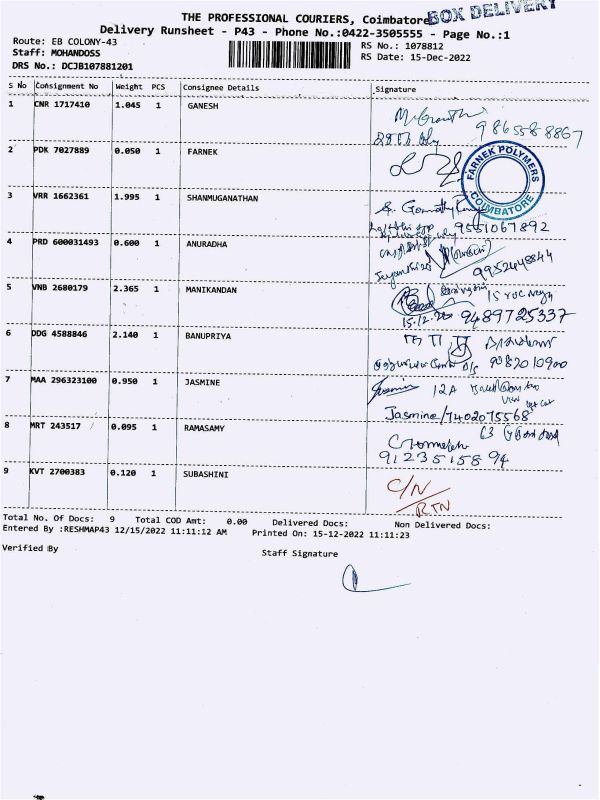 BOX DELIVERY
THE PROFESSIONAL COURIERS, Coimbatore
Delivery Runsheet - P43 - Phone No.:0422-3505555 - Page No.:1
Route: EB COLONY-43
RS No.: 1078812
Staff: MOHANDOSS
RS Date: 15-Dec-2022
DRS No.: DCJB107881201
S No Consignment No Weight PCS Consignee Details Signature
1 CNR 1717410 1.045 1 GANESH
9865588867
2 PDK 7027889 0.050 1 FARNEK
FARNEK POLYMERS COIMBATORE
3 VRR 1662361 1.995 1 SHANMUGANATHAN
9551067892
4 PRD 600031493 0.600 1 ANURADHA
9952448844
5 VNB 2680179 2.365 1 MANIKANDAN
15-12-22 9489725337
6 DDG 4588846 2.140 1 BANUPRIYA
7 MAA 296323100 0.950 1 JASMINE
Jasmine 12A
Jasmine/7402075568
8 MRT 243517 0.095 1 RAMASAMY
9123515894
9 KVT 2700383 0.120 1 SUBASHINI
C/N
RTN
Total No. Of Docs: 9 Total COD Amt: 0.00 Delivered Docs: Non Delivered Docs:
Entered By :RESHMAP43 12/15/2022 11:11:12 AM Printed On: 15-12-2022 11:11:23
Verified By
Staff Signature